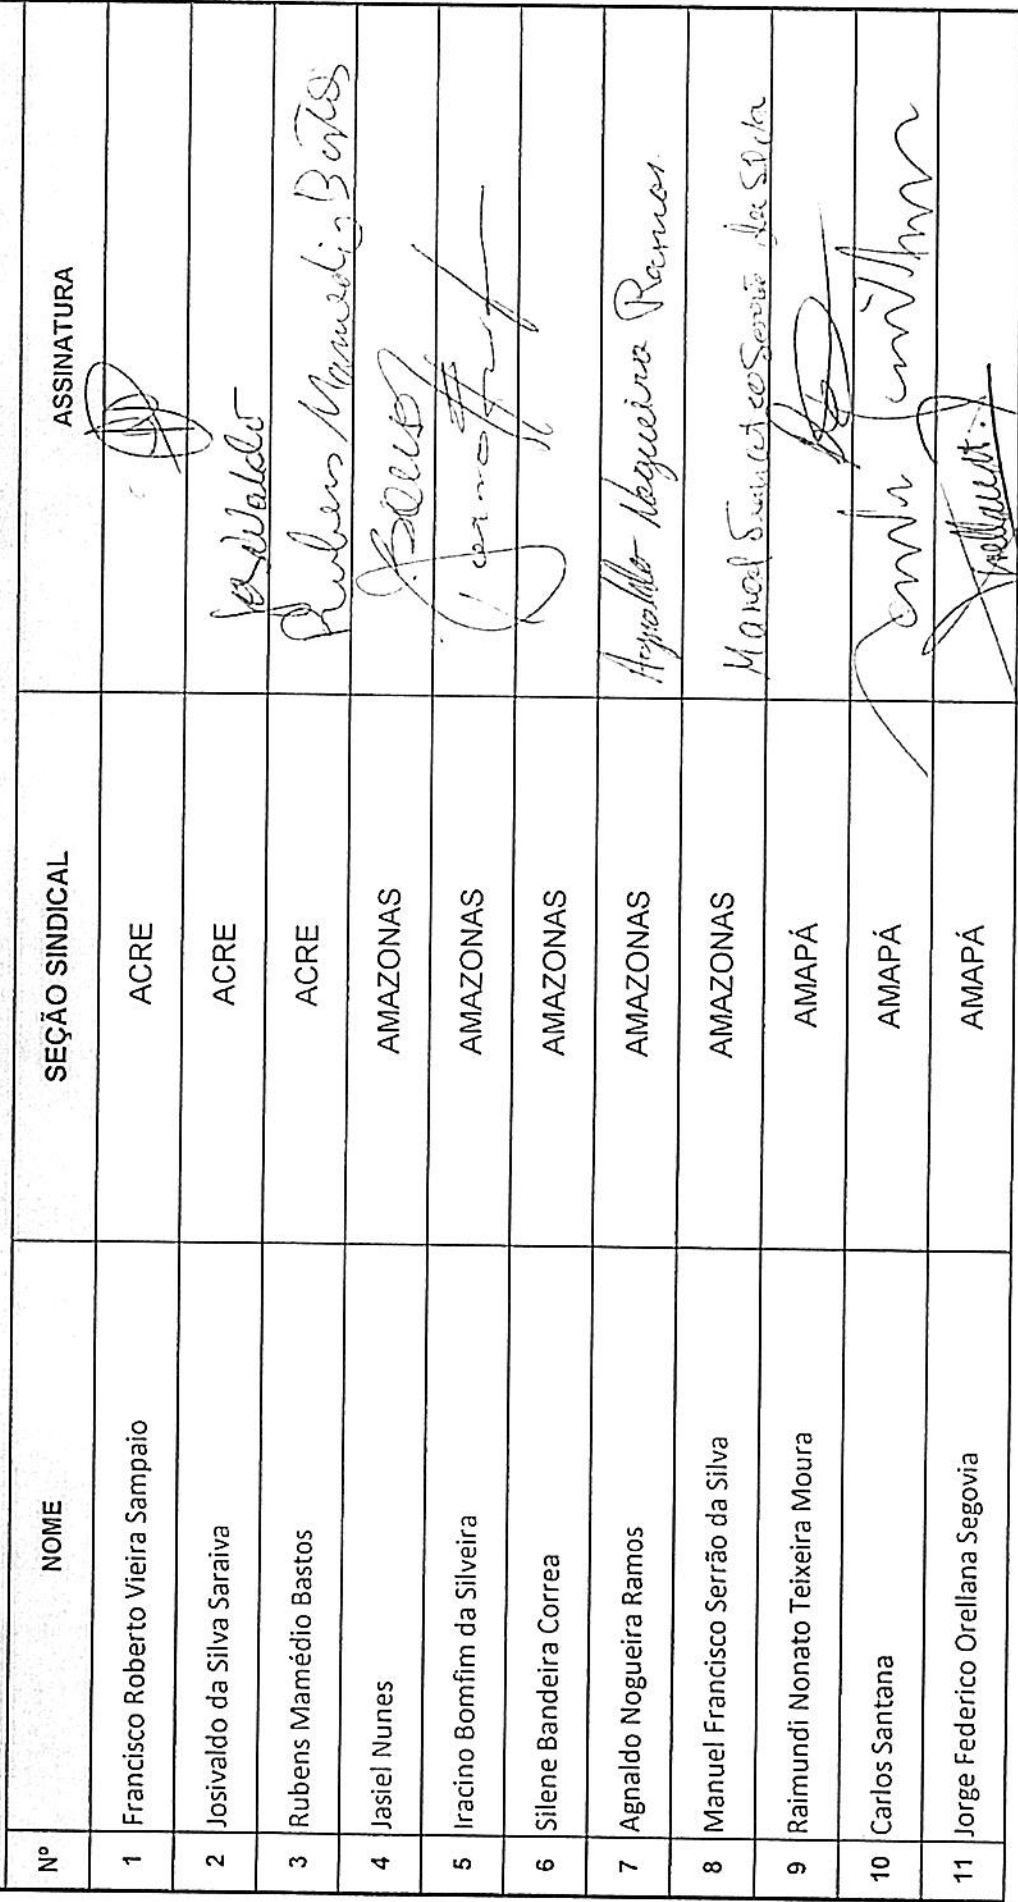 Nº NOME SEÇÃO SINDICAL ASSINATURA
1 Francisco Roberto Vieira Sampaio ACRE
2 Josivaldo da Silva Saraiva ACRE
3 Rubens Mamédio Bastos ACRE Rubens Mamédio Bastos
4 Jasiel Nunes AMAZONAS
5 Iracino Bomfim da Silveira AMAZONAS
6 Silene Bandeira Correa AMAZONAS
7 Agnaldo Nogueira Ramos AMAZONAS Agnaldo Nogueira Ramos
8 Manuel Francisco Serrão da Silva AMAZONAS Manoel Francisco Serrão da Silva
9 Raimundi Nonato Teixeira Moura AMAPÁ
10 Carlos Santana AMAPÁ
11 Jorge Federico Orellana Segovia AMAPÁ